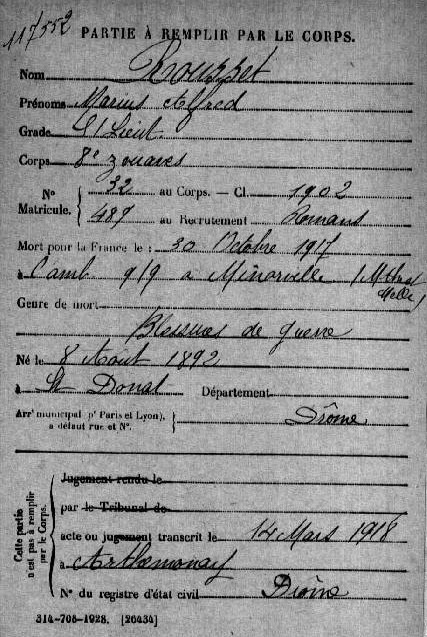 117552
PARTIE À REMPLIR PAR LE CORPS.
Nom Brousset
Prénoms Marius Alfred
Grade S/Lieut
Corps 8e zouaves
No Matricule. 32 au Corps. — Cl. 1902
487 au Recrutement Romans
Mort pour la France le : 30 Octobre 1917
à l'amb 9/9 à Minorville (Mthe et Melle)
Genre de mort
Blessures de guerre
Né le 8 Aout 1892
à St Donat Département
Arrt municipal (pr Paris et Lyon), à défaut rue et No. Drôme
Cette partie n'est pas à remplir par le Corps.
Jugement rendu le
par le Tribunal de
acte ou jugement transcrit le 14 Mars 1918
à Arthemonay
No du registre d'état civil Drôme
314-708-1928. [26434]